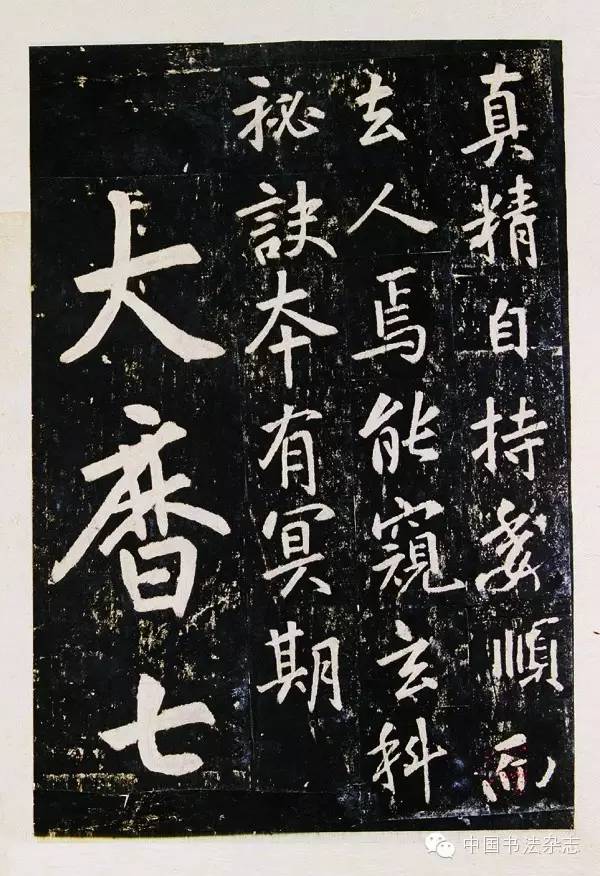 真精自持委順而
去人焉能窺玄科
祕訣夲有冥期
大暦七
中国书法杂志